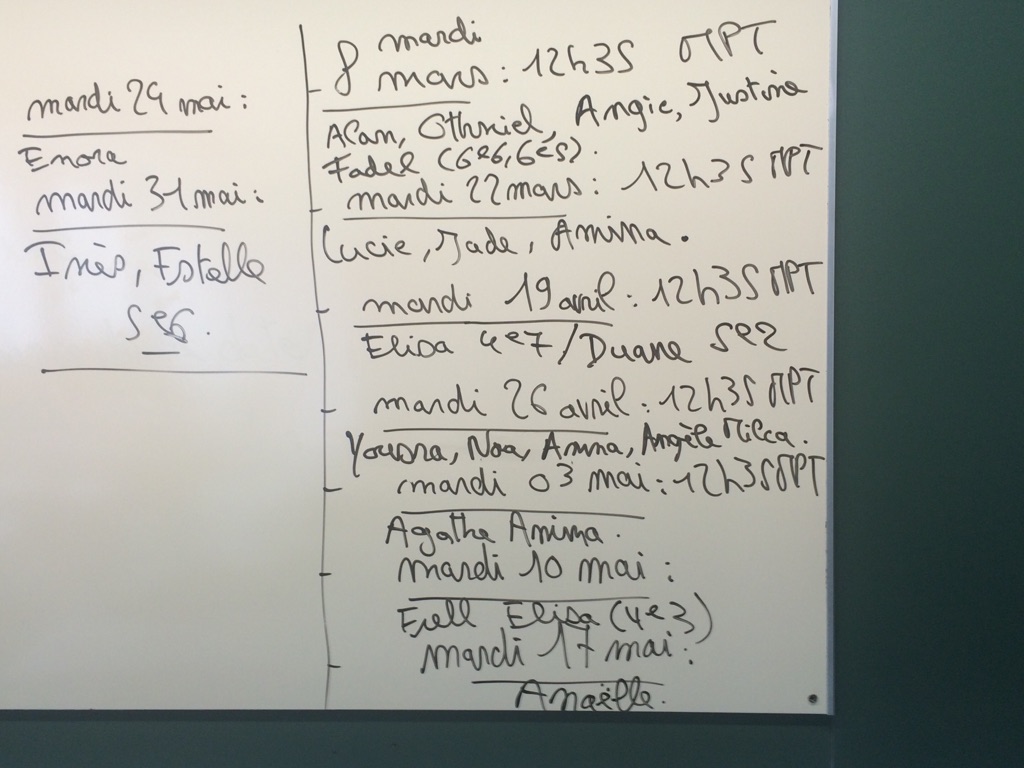 mardi 24 mai :
Enora
mardi 31 mai :
Inès, Estelle
5e6.
mardi
8 mars : 12h35 MPT
Alan, Othniel, Angie, Justine
Fadel (6e6, 6e5).
mardi 22 mars : 12h35 MPT
Lucie, Jade, Amina.
mardi 19 avril : 12h35 MPT
Elisa 4e7 / Duane 5e2
mardi 26 avril : 12h35 MPT
Yousra, Noa, Amina, Angèle Milca.
mardi 03 mai : 12h35 MPT
Agathe Amina.
mardi 10 mai :
Erell Elisa (4e3)
mardi 17 mai :
Anaëlle.